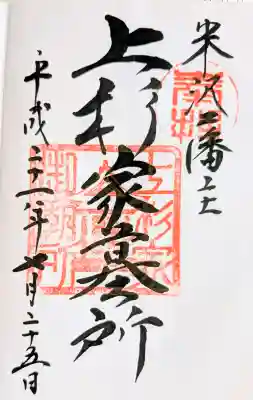 米沢藩主
上杉家墓所
平成二十一年七月二十五日